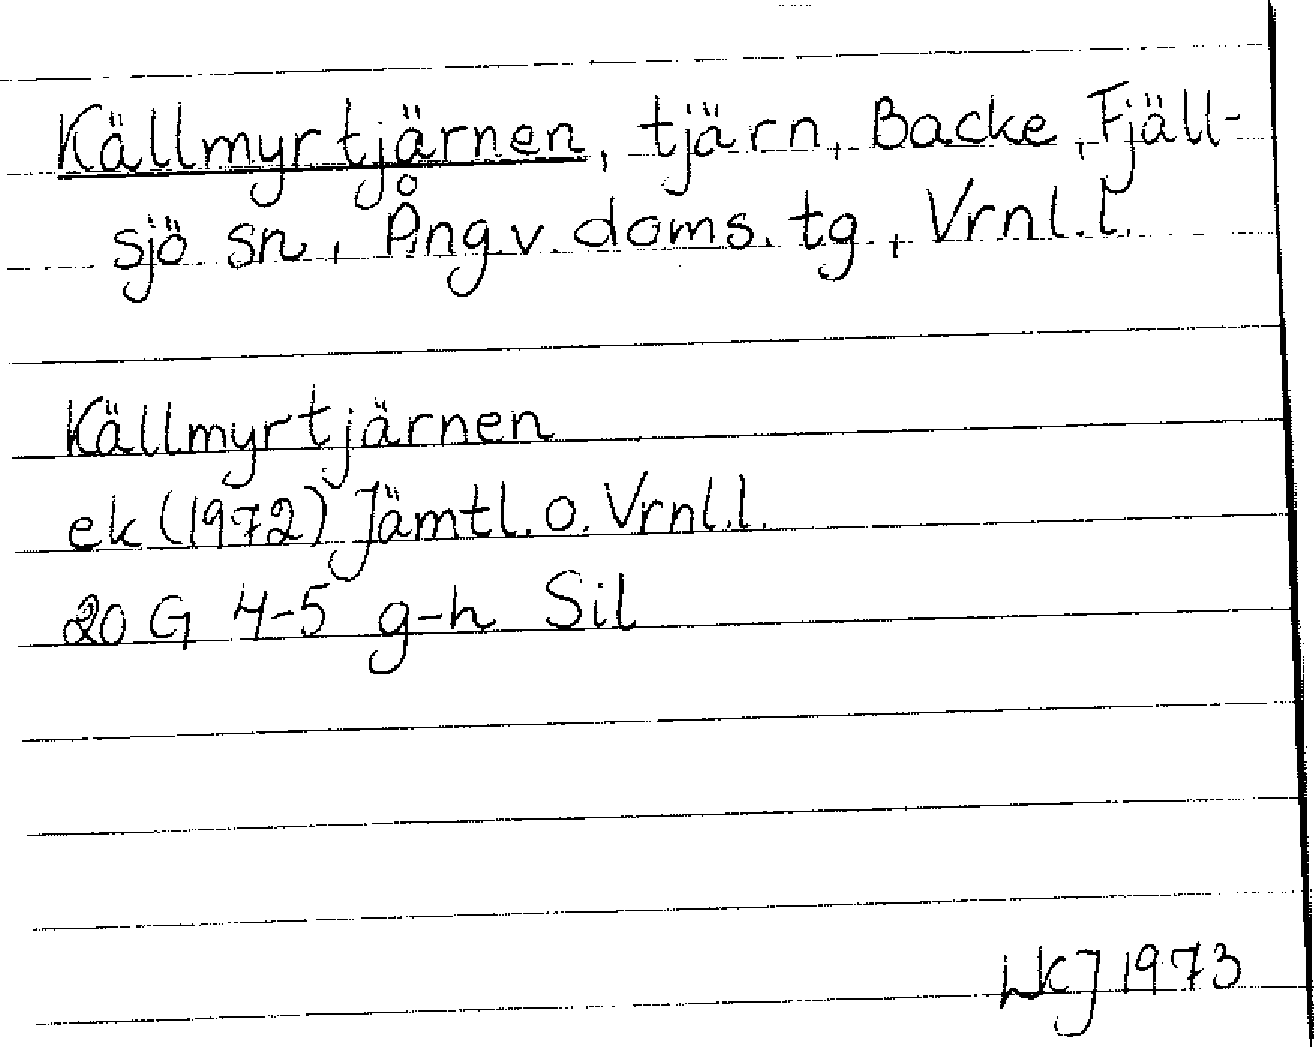 Källmyrtjärnen, tjärn, Backe, Fjäll-
sjö sn, Ång.v. doms. tg, Vrnl.l.
Källmyrtjärnen
ek (1972) Jämtl. o. Vrnl.l.
20 G 4-5 g-h Sil
LKJ 1973